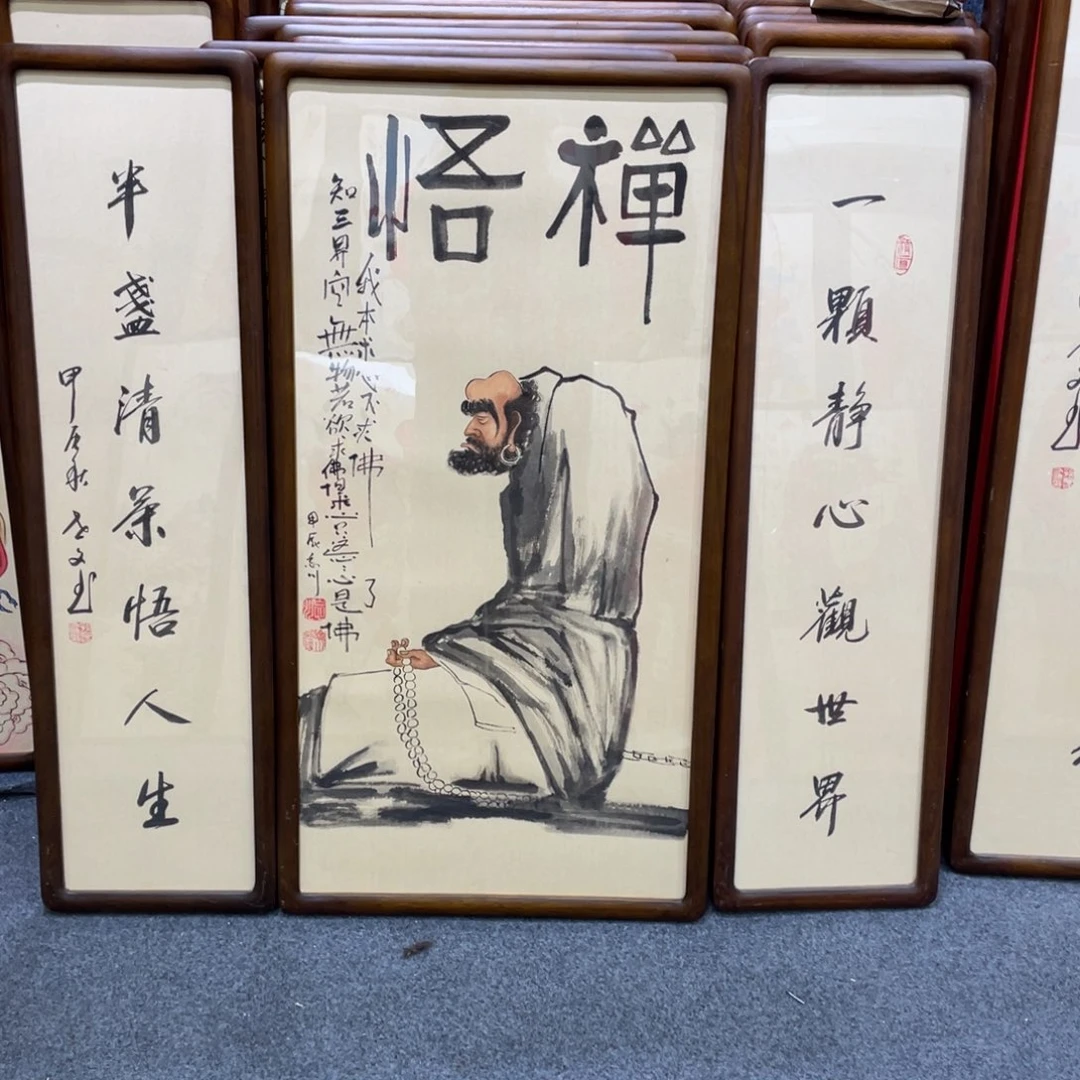 一顆靜心觀世界
禪悟
我本求心不求佛了
知三界空無物若欲求佛但求心只這心心心是佛
甲辰志川
半盞清茶悟人生
甲辰秋